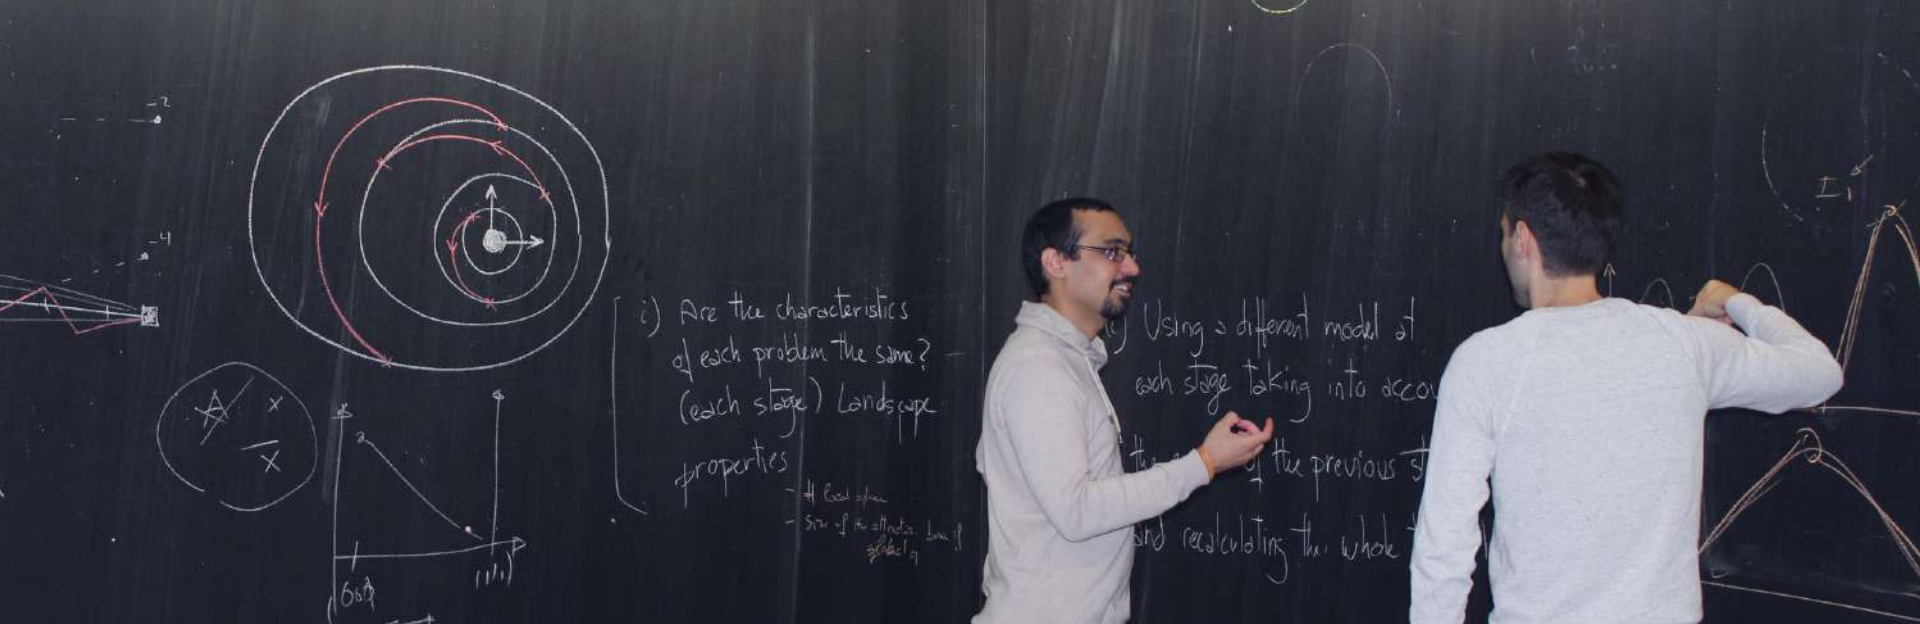 -2
-4
i) Are the characteristics
of each problem the same?
(each stage) Landscape
properties
- # local optima
- Size of the
) Using a different model at
each stage taking into accou
the of the previous st
and recalculating the whole
I1
A
x
x
(1,1,1)